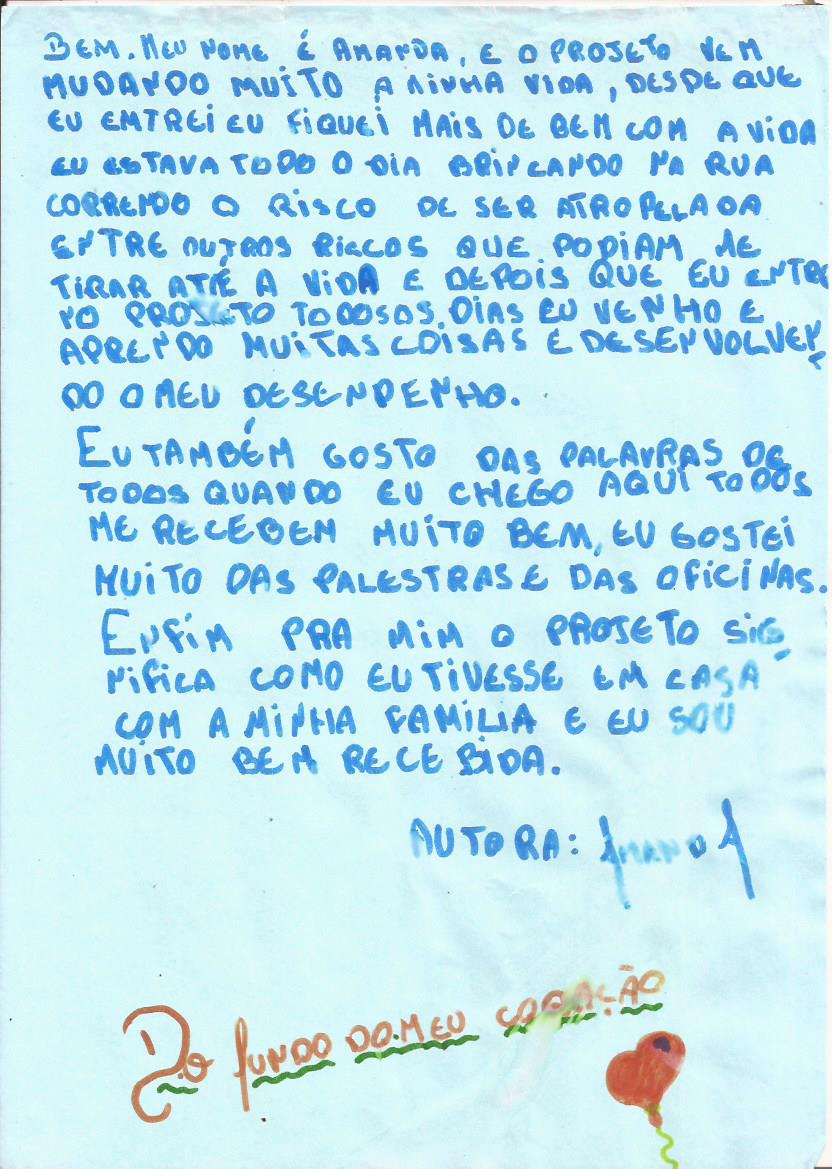 BEM. MEU NOME É AMANDA, E O PROJETO VEM
MUDANDO MUITO A MINHA VIDA, DESDE QUE
EU EMTREI EU FIQUEI MAIS DE BEM COM A VIDA
EU ESTAVA TODO O DIA BRINCANDO NA RUA
CORRENDO O RISCO DE SER ATROPELADA
ENTRE OUTROS RISCOS QUE PODIAM ME
TIRAR ATÉ A VIDA E DEPOIS QUE EU ENTRE
NO PROJETO TODOS OS DIAS EU VENHO E
APRENDO MUITAS COISAS E DESENVOLVEN-
DO O MEU DESENPENHO.
EU TAMBÉM GOSTO DAS PALAVRAS DE
TODOS QUANDO EU CHEGO AQUI TODOS
ME RECEBEM MUITO BEM, EU GOSTEI
MUITO DAS PALESTRAS E DAS OFICINAS.
ENFIM PRA MIM O PROJETO SIG-
NIFICA COMO EU TIVESSE EM CASA
COM A MINHA FAMÍLIA E EU SOU
MUITO BEM RECEBIDA.
AUTORA: AMANDA
DO FUNDO DO MEU CORAÇÃO